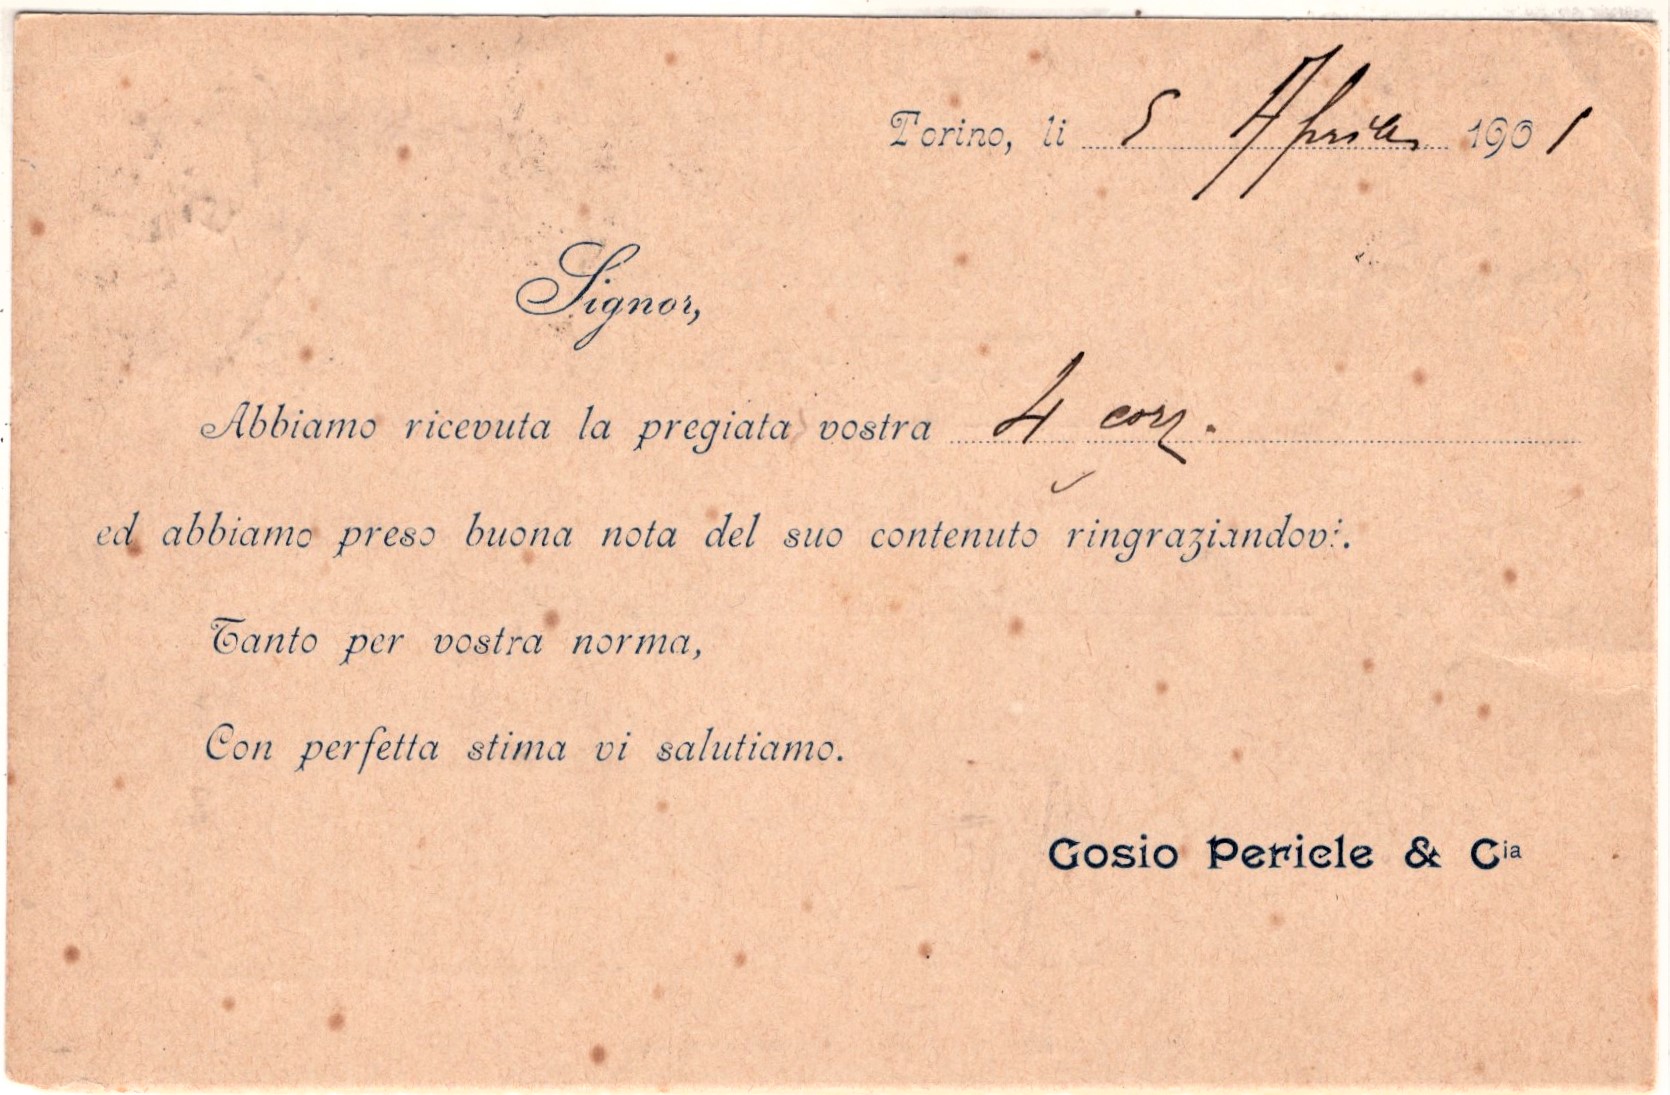 Torino, li 5 Aprile 1901
Signor,
Abbiamo ricevuta la pregiata vostra 4 corr.
ed abbiamo preso buona nota del suo contenuto ringraziandovi.
Tanto per vostra norma,
Con perfetta stima vi salutiamo.
Gosio Pericle & Cia